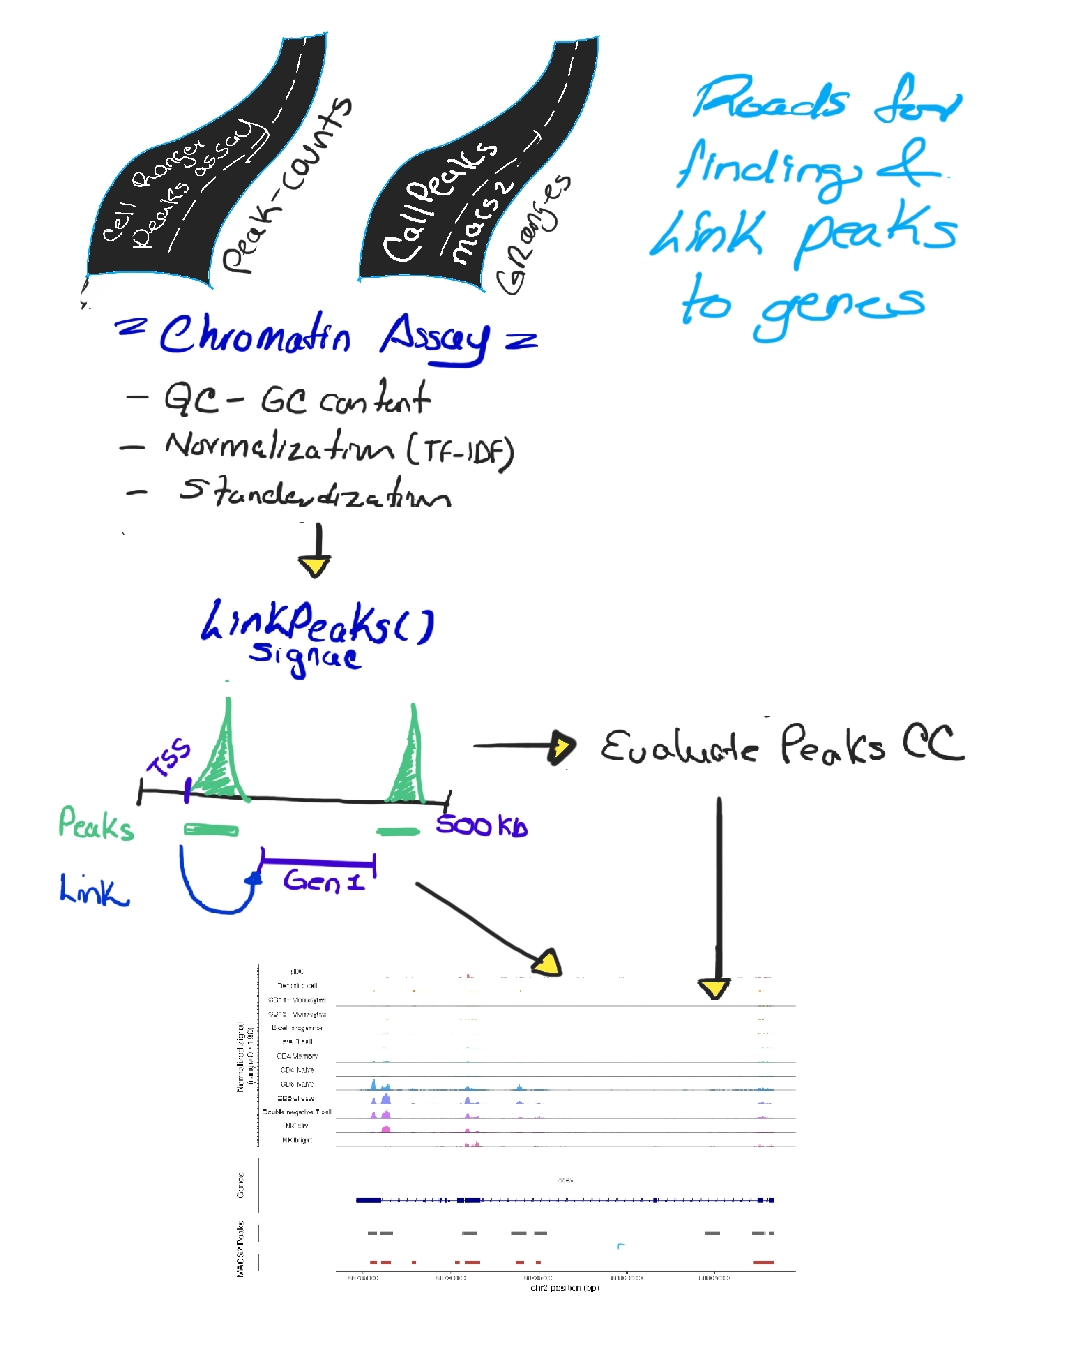 Cell Ranger
Peaks assay
Peak-counts
CallPeaks
macs2
GRanges
Roads for
finding &
Link peaks
to genes
= Chromatin Assay =
- QC - GC content
- Normalization (TF-IDF)
- Standardization
LinkPeaks()
Signac
TSS
Peaks
500Kb
Link
Gen 1
Evaluate Peaks CC
Dendritic cell
CD14+ Monocytes
CD16+ Monocytes
B cell progenitor
CD4 Memory
CD4 Naive
CD8 Naive
Double negative T cell
NK bright
Normalized signal
Genes
MACS2 Peaks
chr2 position (bp)